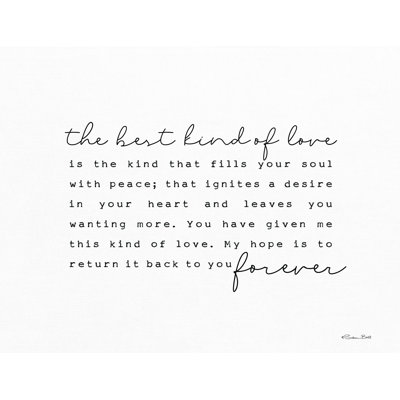 the best kind of love
is the kind that fills your soul
with peace; that ignites a desire
in your heart and leaves you
wanting more. You have given me
this kind of love. My hope is to
return it back to you forever